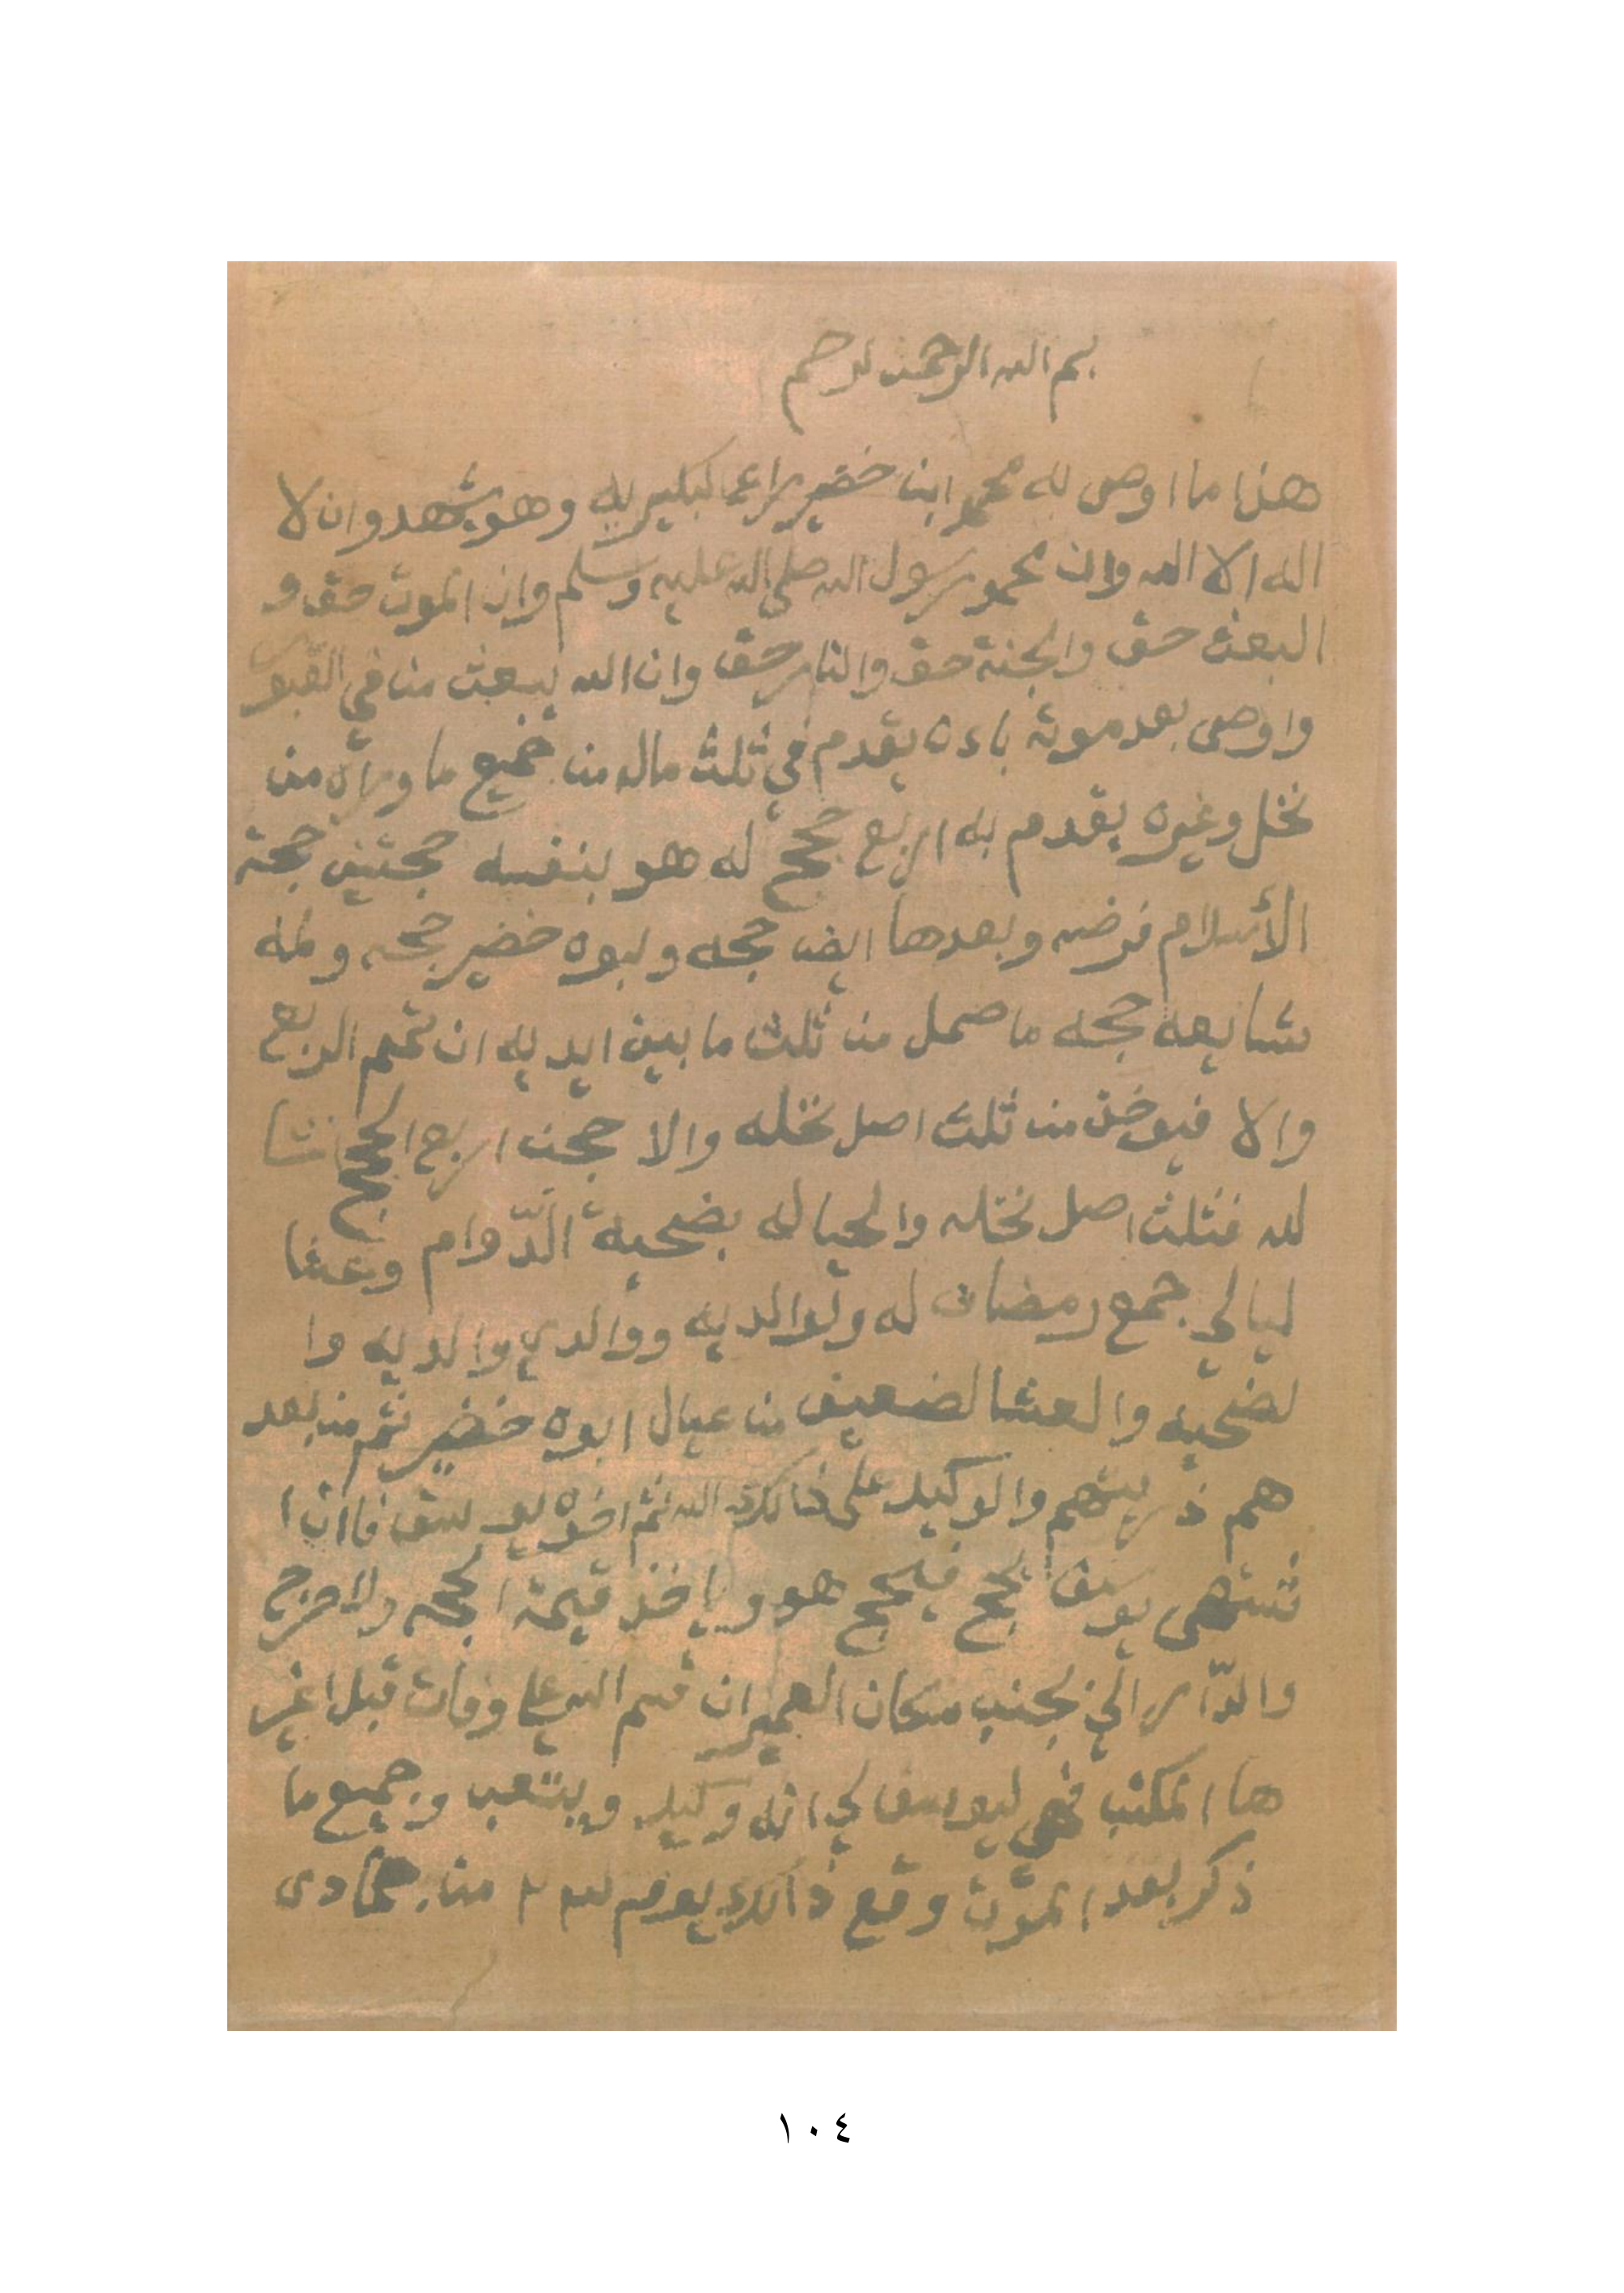 بسم الله الرحمن لرحيم
هذا ما اوصى به محمد ابن خضير راعي البكيريه وهو يشهد وان لا
اله الا الله وان محمد رسول الله صلى الله عليه وسلم وان الموت حق و
البعث حق والجنة حق والنار حق وان الله يبعث من في القبور
واوصى بعد موته باءنه يقدم في ثلث ماله من جميع ما وراه من
نخل وغيره يقدم به اربع حجج له هو بنفسه حجتين حجة
الأسلام فرضه وبعدها ايض حجه ولبوه خضير حجه ولمه
شايعه حجه ما حمل من ثلث ما بين ايديه ان تمم الربع
والا فيوخذ من ثلث اصل نخله والا حجن اربع الحجج انشا
لله فثلث اصل نخله والحياله بضحية الدّوام وعشا
ليالي جمع رمضان له ولوالديه ووالدي والديه وا
لضحيه والعشا لضعيف من عيال ابوه خضير ثم من بعد
هم ذريتهم والوكيل على ذالك الله ثم اخوه يوسف فاان ا
شتهى يوسف يحج فيحج هو وياخذ قيمة الحجه والا خرج
والدّار الي بجنب مكان العمير ان قسم الله علي وفات قبل اغير
ها المكتب فهي ليوسف لي انه وكيل ويتعب وجميع ما
ذكر بعد الموت وقع ذالك يوم من جمادى
١٠٤